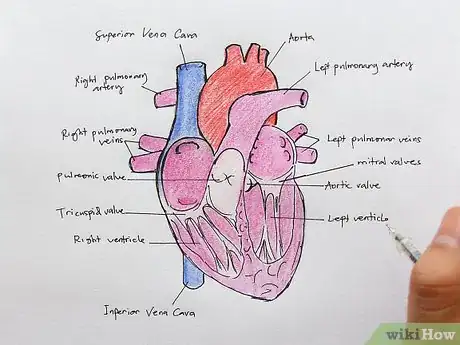 Superior Vena Cava
Aorta
Left pulmonary artery
Right pulmonary
artery
Right pulmonary
veins
Left pulmonar veins
mitral valves
pulmonic valve
Aortic valve
Tricuspid valve
Left venticle
Right ventricle
Inferior Vena Cava
wikiHow